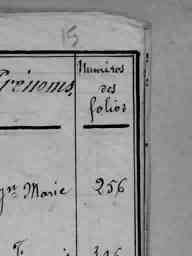 15
Prénoms
Numéros
des
folios
Marie 256